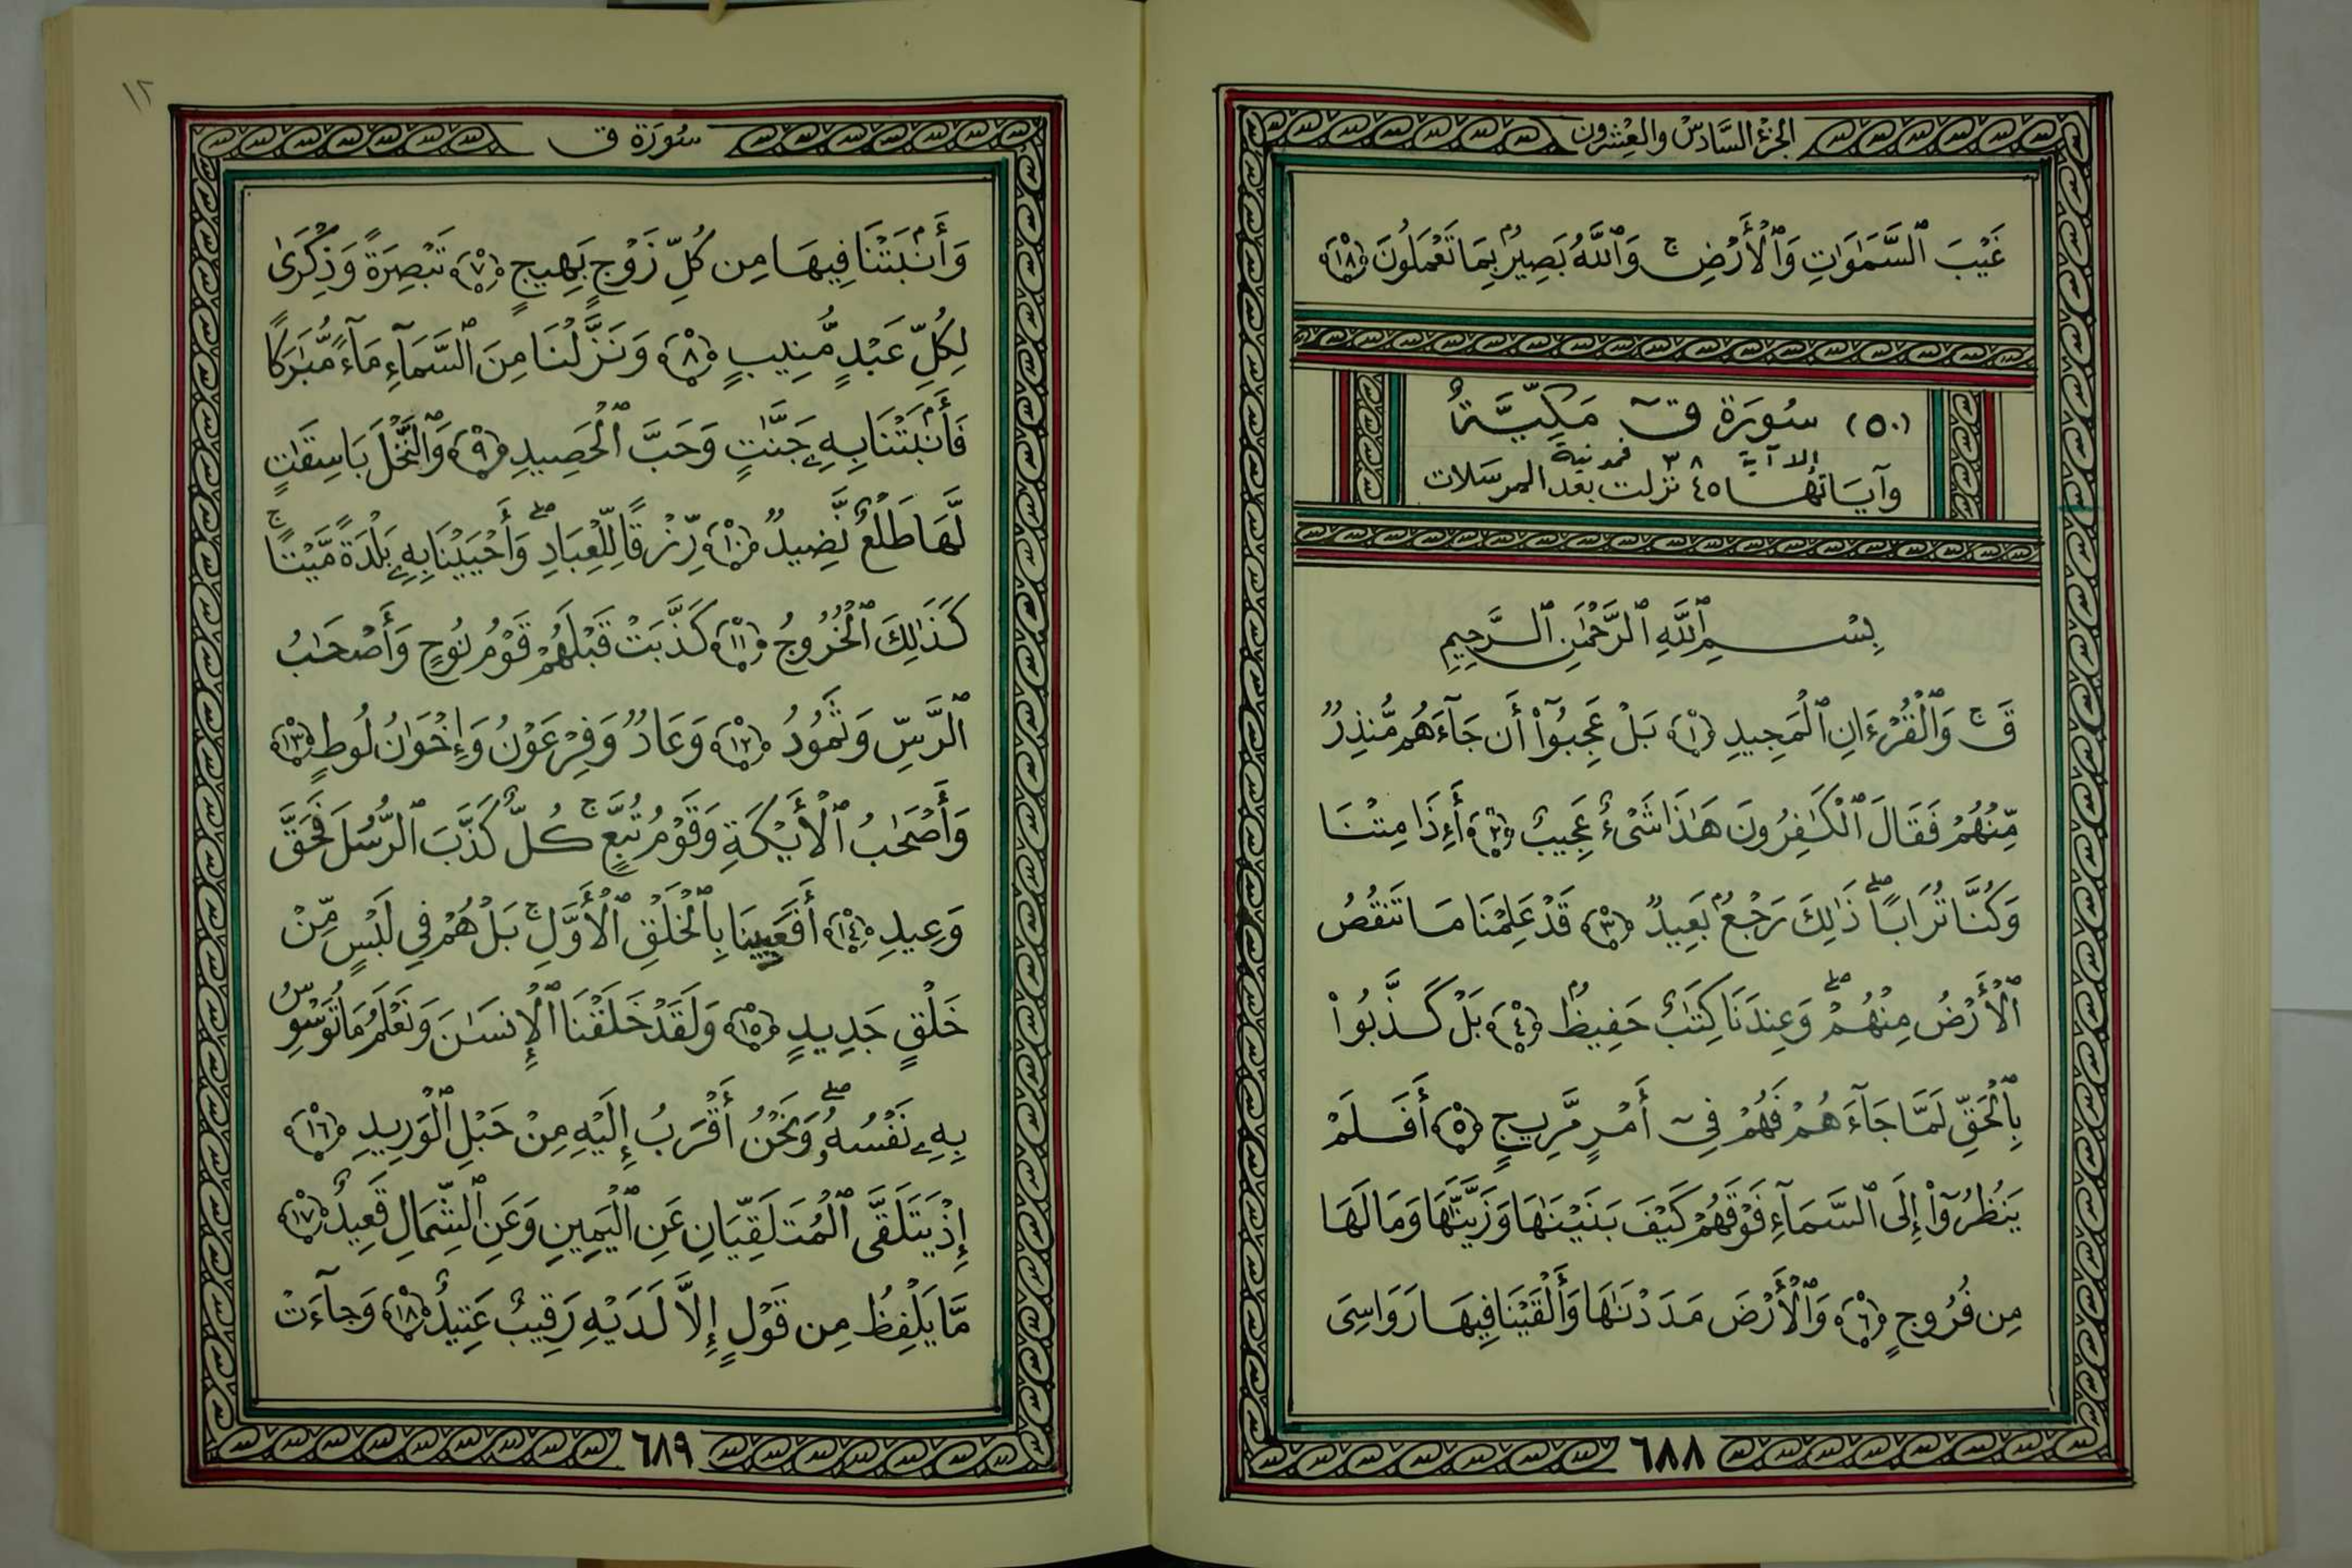 الجزء السَّادسْ والعِشْرون
غَيْبَ ٱلسَّمَٰوَٰتِ وَٱلْأَرْضِ ۚ وَٱللَّهُ بَصِيرٌۢ بِمَا تَعْمَلُونَ ﴿١٨﴾
(٥٠) سُورَة قٓ مَكِيَّةٌ
إلا آية ٣٨ فمدنية
وآيَاتهَا ٤٥ نزلت بعد المرسَلات
بِسْمِ ٱللَّهِ ٱلرَّحْمَٰنِ ٱلرَّحِيمِ
قٓ ۚ وَٱلْقُرْءَانِ ٱلْمَجِيدِ ﴿١﴾ بَلْ عَجِبُوٓا۟ أَن جَآءَهُم مُّنذِرٌ
مِّنْهُمْ فَقَالَ ٱلْكَٰفِرُونَ هَٰذَا شَىْءٌ عَجِيبٌ ﴿٢﴾ أَءِذَا مِتْنَا
وَكُنَّا تُرَابًا ۖ ذَٰلِكَ رَجْعٌۢ بَعِيدٌ ﴿٣﴾ قَدْ عَلِمْنَا مَا تَنقُصُ
ٱلْأَرْضُ مِنْهُمْ ۖ وَعِندَنَا كِتَٰبٌ حَفِيظٌۢ ﴿٤﴾ بَلْ كَذَّبُوا۟
بِٱلْحَقِّ لَمَّا جَآءَهُمْ فَهُمْ فِىٓ أَمْرٍ مَّرِيجٍ ﴿٥﴾ أَفَلَمْ
يَنظُرُوٓا۟ إِلَى ٱلسَّمَآءِ فَوْقَهُمْ كَيْفَ بَنَيْنَٰهَا وَزَيَّنَّٰهَا وَمَا لَهَا
مِن فُرُوجٍ ﴿٦﴾ وَٱلْأَرْضَ مَدَدْنَٰهَا وَأَلْقَيْنَا فِيهَا رَوَٰسِىَ
٦٨٨
١٢
سُورَة ق
وَأَنۢبَتْنَا فِيهَا مِن كُلِّ زَوْجٍۭ بَهِيجٍ ﴿٧﴾ تَبْصِرَةً وَذِكْرَىٰ
لِكُلِّ عَبْدٍ مُّنِيبٍ ﴿٨﴾ وَنَزَّلْنَا مِنَ ٱلسَّمَآءِ مَآءً مُّبَٰرَكًا
فَأَنۢبَتْنَا بِهِۦ جَنَّٰتٍ وَحَبَّ ٱلْحَصِيدِ ﴿٩﴾ وَٱلنَّخْلَ بَاسِقَٰتٍ
لَّهَا طَلْعٌ نَّضِيدٌ ﴿١٠﴾ رِّزْقًا لِّلْعِبَادِ ۖ وَأَحْيَيْنَا بِهِۦ بَلْدَةً مَّيْتًا ۚ
كَذَٰلِكَ ٱلْخُرُوجُ ﴿١١﴾ كَذَّبَتْ قَبْلَهُمْ قَوْمُ نُوحٍ وَأَصْحَٰبُ
ٱلرَّسِّ وَثَمُودُ ﴿١٢﴾ وَعَادٌ وَفِرْعَوْنُ وَإِخْوَٰنُ لُوطٍ ﴿١٣﴾
وَأَصْحَٰبُ ٱلْأَيْكَةِ وَقَوْمُ تُبَّعٍ ۚ كُلٌّ كَذَّبَ ٱلرُّسُلَ فَحَقَّ
وَعِيدِ ﴿١٤﴾ أَفَعَيِينَا بِٱلْخَلْقِ ٱلْأَوَّلِ ۚ بَلْ هُمْ فِى لَبْسٍ مِّنْ
خَلْقٍ جَدِيدٍ ﴿١٥﴾ وَلَقَدْ خَلَقْنَا ٱلْإِنسَٰنَ وَنَعْلَمُ مَا تُوَسْوِسُ
بِهِۦ نَفْسُهُۥ ۖ وَنَحْنُ أَقْرَبُ إِلَيْهِ مِنْ حَبْلِ ٱلْوَرِيدِ ﴿١٦﴾
إِذْ يَتَلَقَّى ٱلْمُتَلَقِّيَانِ عَنِ ٱلْيَمِينِ وَعَنِ ٱلشِّمَالِ قَعِيدٌ ﴿١٧﴾
مَّا يَلْفِظُ مِن قَوْلٍ إِلَّا لَدَيْهِ رَقِيبٌ عَتِيدٌ ﴿١٨﴾ وَجَآءَتْ
٦٨٩